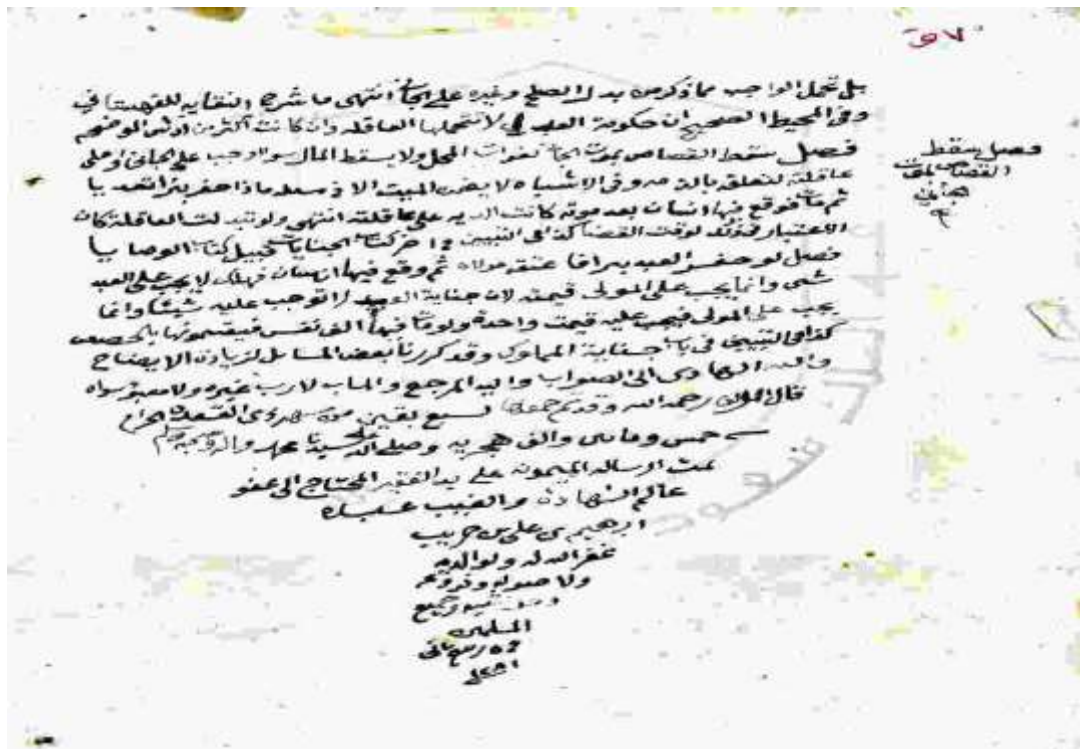 ٧ ق
بل تحمل الواجب مما ذكر من بدل الصلح وغيره على انتهى ما شرح النقايه للقهستاني
وفى المحيط الصحيح ان حكومة لا تتحملها العاقله وان كانت اكثر من
فصل سقط القصاص بموت لفوات المحل ولا يسقط المال سواء وجب على الجانى او على
عاقلته لتعلقه وفى الاشباه لا يضمن الميت الا فى مسئله ما اذا حفر بئرا تعديا
ثم فوقع فيها انسان بعد موته كانت الديه على عاقلته انتهى ولو تبدلت العاقلة كان
الاعتبار فى ذلك لوقت القضا كذا فى التبيين اخر الجنايات قبيل الوصايا
فصل لو حفر العبد بئرا فا عتقه مولاه ثم وقع فيها انسان فهلك لا يجب على العبد
شى وانما يجب على المولى قيمته لان جناية العبد لا توجب عليه شيئا وانما
يجب على المولى فيجب عليه قيمت واحدة ولو فيها الف نفس فيقسمونها بالحصص
كذا فى التبيين فى جناية المملوك وقد كررنا بعض المسائل لزيادة الايضاح
والله الهادى الى الصواب واليه المرجع والماب لا رب غيره ولا معبود سواه
قال المؤلف رحمه الله وقد تم جمعها لسبع بقين من شهر ذى القعدة الحرام
خمس وثمانين والف هجريه وصلى الله على سيدنا محمد واله وصحبه وسلم
تمت الرساله الميمونه على يد الفقير المحتاج الى عفو
عالم الشهادة والغيب عبده
ابرهيم بن على بن
غفر الله له ولوالديه
ولاصوله وفروعه
وجميع
المسلمين
ربيع ثانى
فصل سقط
القصاص بموت
الجانى